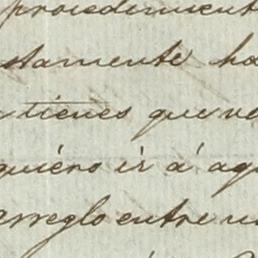 procedimient
stamente ha
tienes que ve
quiéro ir á aq
arreglo entre n